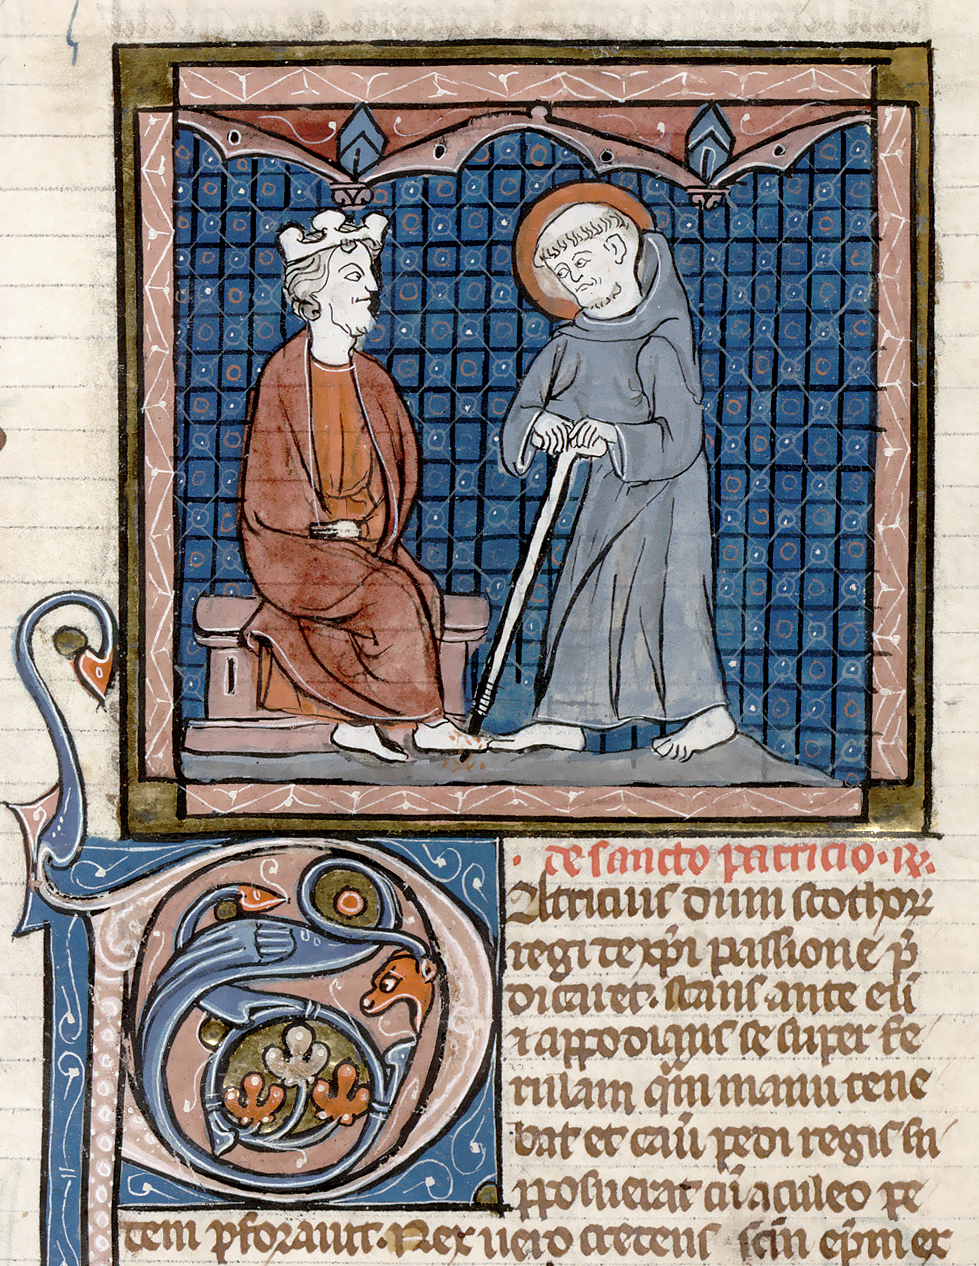 de sancto patricio. Rx.
Patricius dum scothorͫ
regi de xp̄i passione p̄
dicaret. stans ante eū
⁊ appodians se super fe
rulam qͣm manu tene
bat et casu pedi regis su
pposuerat cū aculeo pe
dem pforauit. Rex uero credens scm̄ ep̄m ex